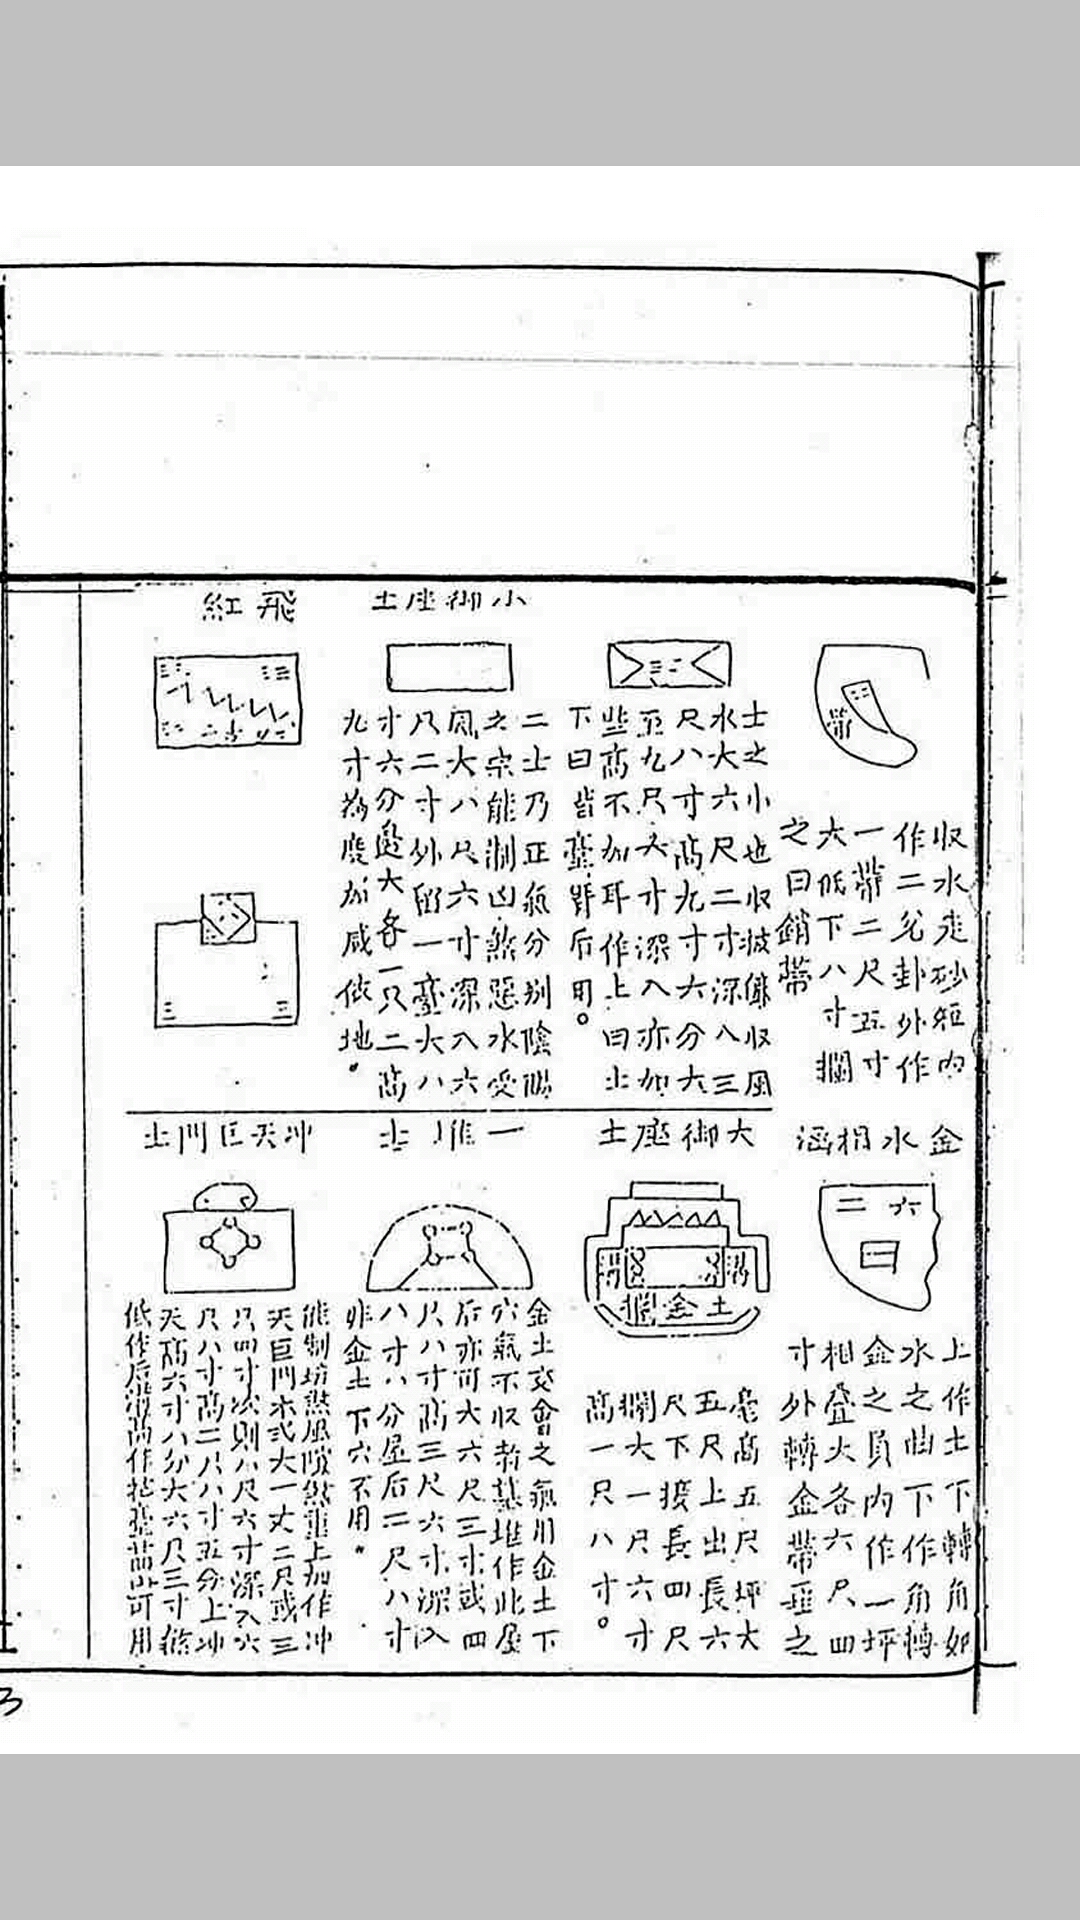 收水走砂短內
作二兊卦外作
一帶二尺五寸
大低下八寸攔
之曰銷帶
土之小也收披簷收風
水大六尺二寸深八三
尺八寸高九寸六分大
至九尺大寸深入亦加
些高不加耳作上曰土
下曰皆臺野后用。
小御座土
二土乃正氣分別陰陽
之宗能制凶煞惡水受
風大八尺六寸深入六
尺二寸外留一臺大八
寸六分邊大各一尺二高
九寸為度加咸依地。
飛紅
金水相涵
六二
曰
上作土下轉角如
水之曲下作角轉
金之員內作一坪
相疊大各六尺四
寸外轉金帶亜之
大御座土
土金攔
毫高五尺坪大
五尺上出長六
尺下接長四尺
攔大一尺六寸
高一尺八寸。
一堆土
金土交會之氣用金土下
穴氣不收若墓堆作此屋
后亦可大六尺三寸或四
尺八寸高三尺六寸深入
八寸八分屋后二尺八寸
非金土下穴不用。
冲天巨門土
能制坊煞風隙煞重上加作冲
天巨門木弍大一丈二尺或三
尺四寸次則八尺六寸深入六
尺八寸高二尺八寸五分上冲
天高六寸八分大六尺三寸
低作后高作皆可用